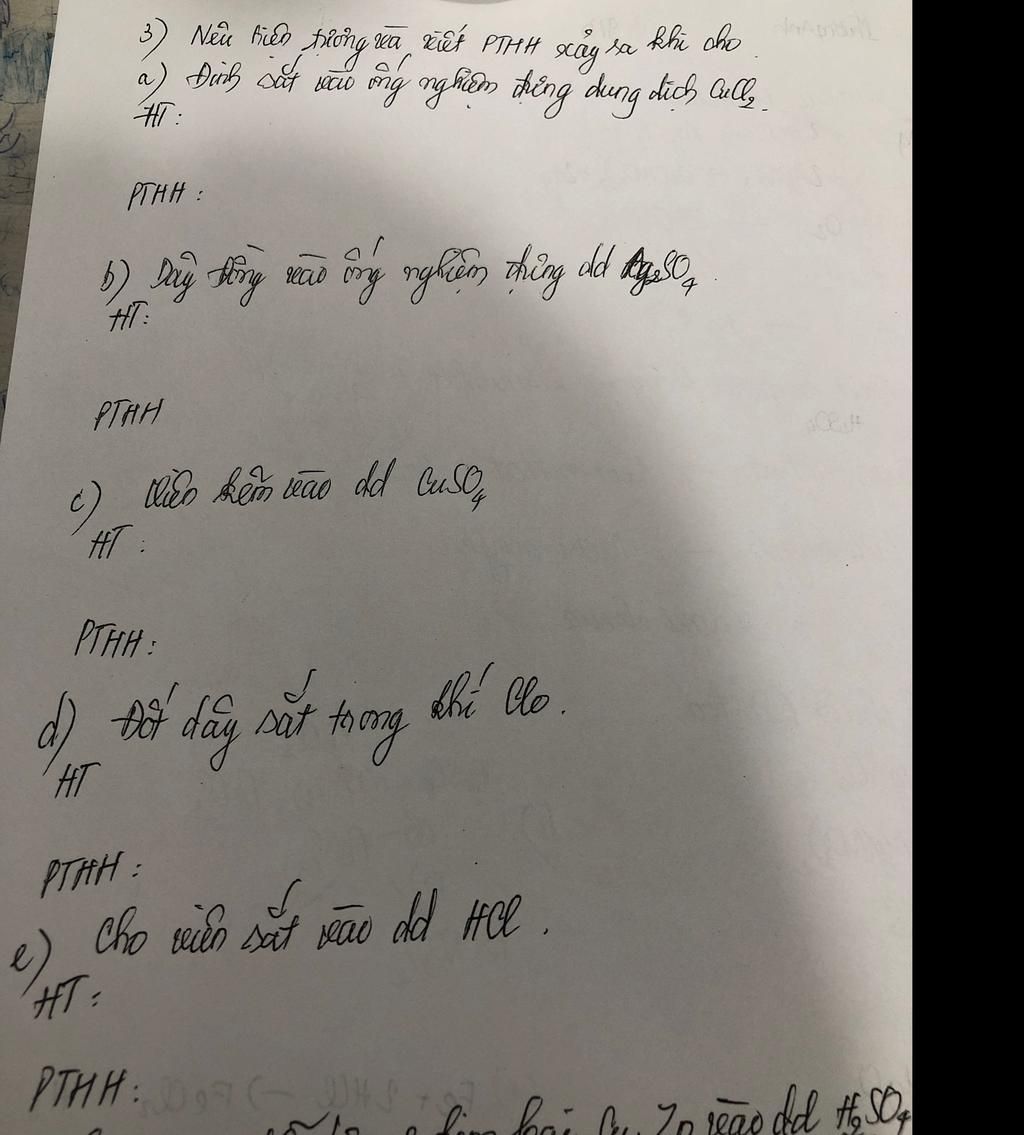 3) Nêu hiện tượng và viết PTHH xảy ra khi cho
a) Đinh sắt vào ống nghiệm đựng dung dịch CuCl2.
HT:
PTHH:
b) Dây đồng vào ống nghiệm đựng dd Ag2SO4
HT:
PTHH
c) Viên kẽm vào dd CuSO4
HT:
PTHH:
d) Đốt dây sắt trong khí Clo.
HT
PTHH:
e) Cho viên sắt vào dd HCl.
HT:
PTHH:
kim loại Cu, Zn vào dd H2SO4